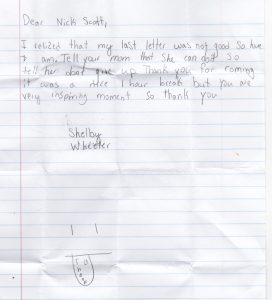 Dear Nick Scott,
I relized that my last letter was not good So here
I am. Tell your mom that She can do it So
tell her dont give up Thank you for coming
it was a nice 1 hour break but you are
very inspiring moment So thank you
Shelby
Wheeler